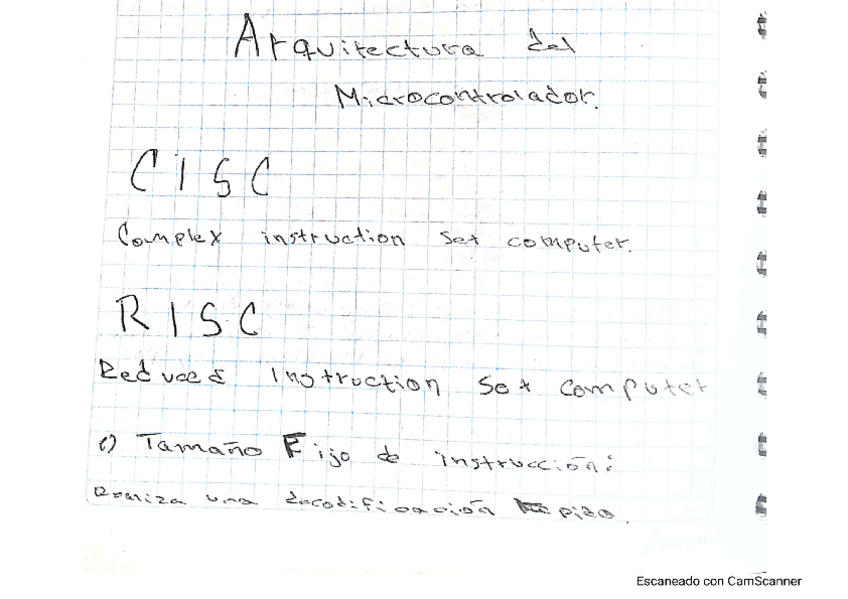 Arquitectura del
Microcontrolador.
CISC
Complex instruction set computer.
RISC
Reduced Instruction Set Computer
1) Tamaño Fijo de instrucción:
Realiza una decodificación
Escaneado con CamScanner